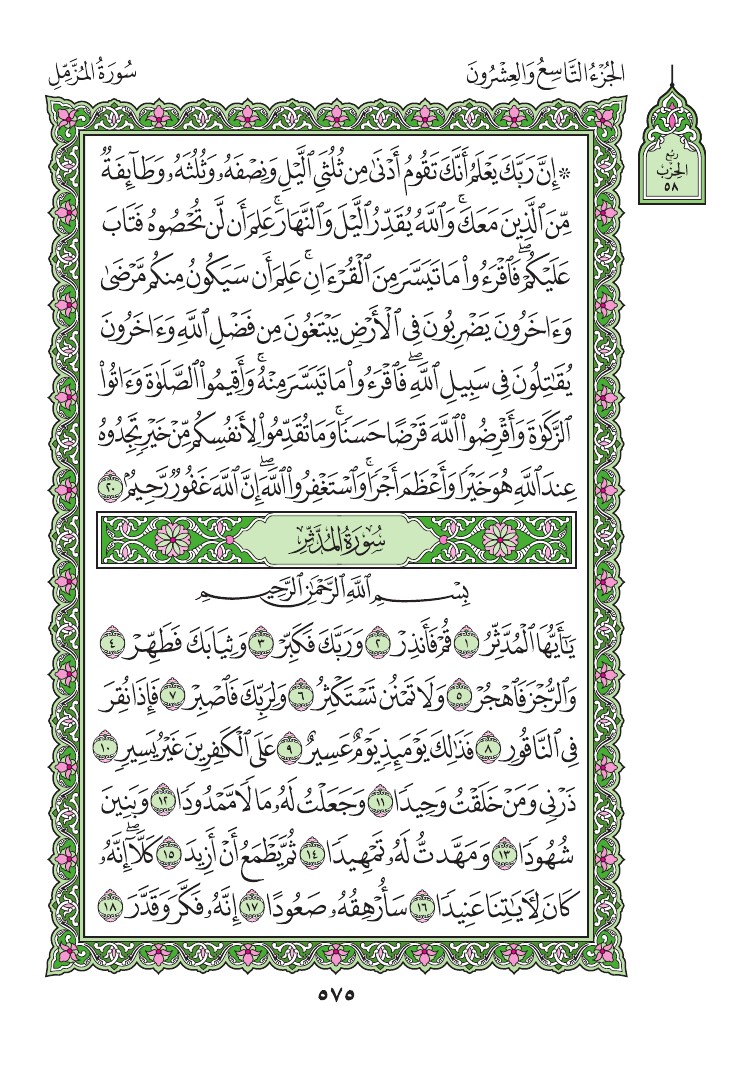 الجُزْءُ التَّاسِعُ وَالعِشْرُونَ
سُورَةُ المُزَّمِّل
ربع
الحِزْب
٥٨
۞ إِنَّ رَبَّكَ يَعْلَمُ أَنَّكَ تَقُومُ أَدْنَىٰ مِن ثُلُثَيِ ٱلَّيْلِ وَنِصْفَهُۥ وَثُلُثَهُۥ وَطَآئِفَةٌ
مِّنَ ٱلَّذِينَ مَعَكَۚ وَٱللَّهُ يُقَدِّرُ ٱلَّيْلَ وَٱلنَّهَارَۚ عَلِمَ أَن لَّن تُحْصُوهُ فَتَابَ
عَلَيْكُمْۖ فَٱقْرَءُوا۟ مَا تَيَسَّرَ مِنَ ٱلْقُرْءَانِۚ عَلِمَ أَن سَيَكُونُ مِنكُم مَّرْضَىٰ
وَءَاخَرُونَ يَضْرِبُونَ فِى ٱلْأَرْضِ يَبْتَغُونَ مِن فَضْلِ ٱللَّهِ وَءَاخَرُونَ
يُقَٰتِلُونَ فِى سَبِيلِ ٱللَّهِۖ فَٱقْرَءُوا۟ مَا تَيَسَّرَ مِنْهُۚ وَأَقِيمُوا۟ ٱلصَّلَوٰةَ وَءَاتُوا۟
ٱلزَّكَوٰةَ وَأَقْرِضُوا۟ ٱللَّهَ قَرْضًا حَسَنًاۚ وَمَا تُقَدِّمُوا۟ لِأَنفُسِكُم مِّنْ خَيْرٍ تَجِدُوهُ
عِندَ ٱللَّهِ هُوَ خَيْرًا وَأَعْظَمَ أَجْرًاۚ وَٱسْتَغْفِرُوا۟ ٱللَّهَۖ إِنَّ ٱللَّهَ غَفُورٌ رَّحِيمٌۢ ٢٠
سُورَةُ المُدَّثِّر
بِسْمِ ٱللَّهِ ٱلرَّحْمَٰنِ ٱلرَّحِيمِ
يَٰٓأَيُّهَا ٱلْمُدَّثِّرُ ١ قُمْ فَأَنذِرْ ٢ وَرَبَّكَ فَكَبِّرْ ٣ وَثِيَابَكَ فَطَهِّرْ ٤
وَٱلرُّجْزَ فَٱهْجُرْ ٥ وَلَا تَمْنُن تَسْتَكْثِرُ ٦ وَلِرَبِّكَ فَٱصْبِرْ ٧ فَإِذَا نُقِرَ
فِى ٱلنَّاقُورِ ٨ فَذَٰلِكَ يَوْمَئِذٍ يَوْمٌ عَسِيرٌ ٩ عَلَى ٱلْكَٰفِرِينَ غَيْرُ يَسِيرٍ ١٠
ذَرْنِى وَمَنْ خَلَقْتُ وَحِيدًا ١١ وَجَعَلْتُ لَهُۥ مَالًا مَّمْدُودًا ١٢ وَبَنِينَ
شُهُودًا ١٣ وَمَهَّدتُّ لَهُۥ تَمْهِيدًا ١٤ ثُمَّ يَطْمَعُ أَنْ أَزِيدَ ١٥ كَلَّآۖ إِنَّهُۥ
كَانَ لِءَايَٰتِنَا عَنِيدًا ١٦ سَأُرْهِقُهُۥ صَعُودًا ١٧ إِنَّهُۥ فَكَّرَ وَقَدَّرَ ١٨
٥٧٥